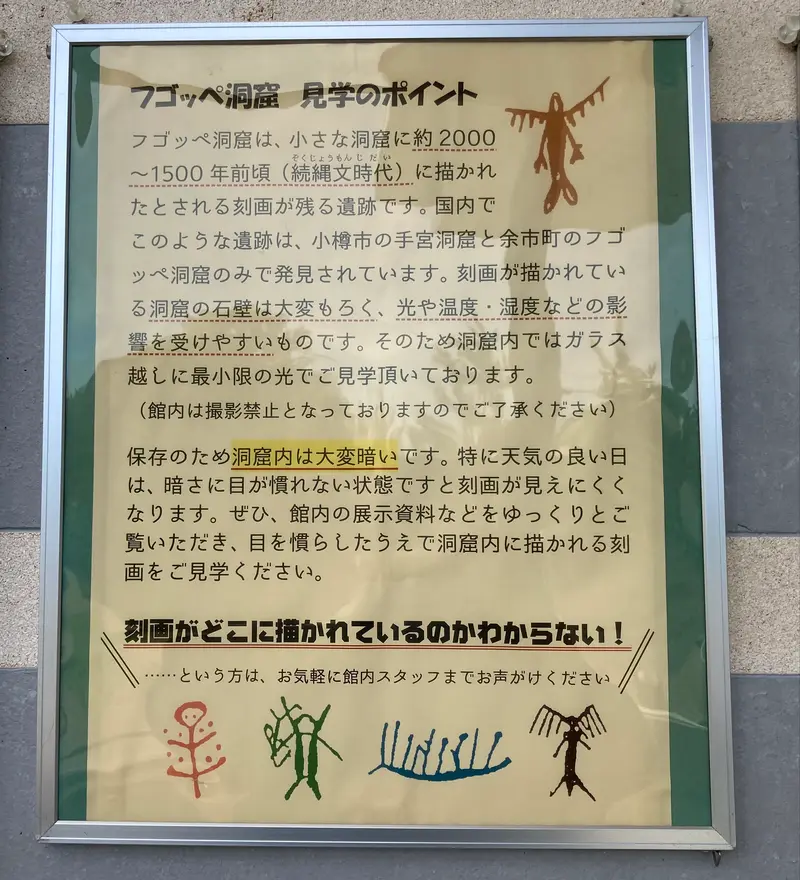 フゴッペ洞窟 見学のポイント
フゴッペ洞窟は、小さな洞窟に約2000
ぞくじょうもんじだい
～1500年前頃（続縄文時代）に描かれ
たとされる刻画が残る遺跡です。国内で
このような遺跡は、小樽市の手宮洞窟と余市町のフゴ
ッペ洞窟のみで発見されています。刻画が描かれてい
る洞窟の石壁は大変もろく、光や温度・湿度などの影
響を受けやすいものです。そのため洞窟内ではガラス
越しに最小限の光でご見学頂いております。
（館内は撮影禁止となっておりますのでご了承ください）
保存のため洞窟内は大変暗いです。特に天気の良い日
は、暗さに目が慣れない状態ですと刻画が見えにくく
なります。ぜひ、館内の展示資料などをゆっくりとご
覧いただき、目を慣らしたうえで洞窟内に描かれる刻
画をご見学ください。
刻画がどこに描かれているのかわからない！
……という方は、お気軽に館内スタッフまでお声がけください